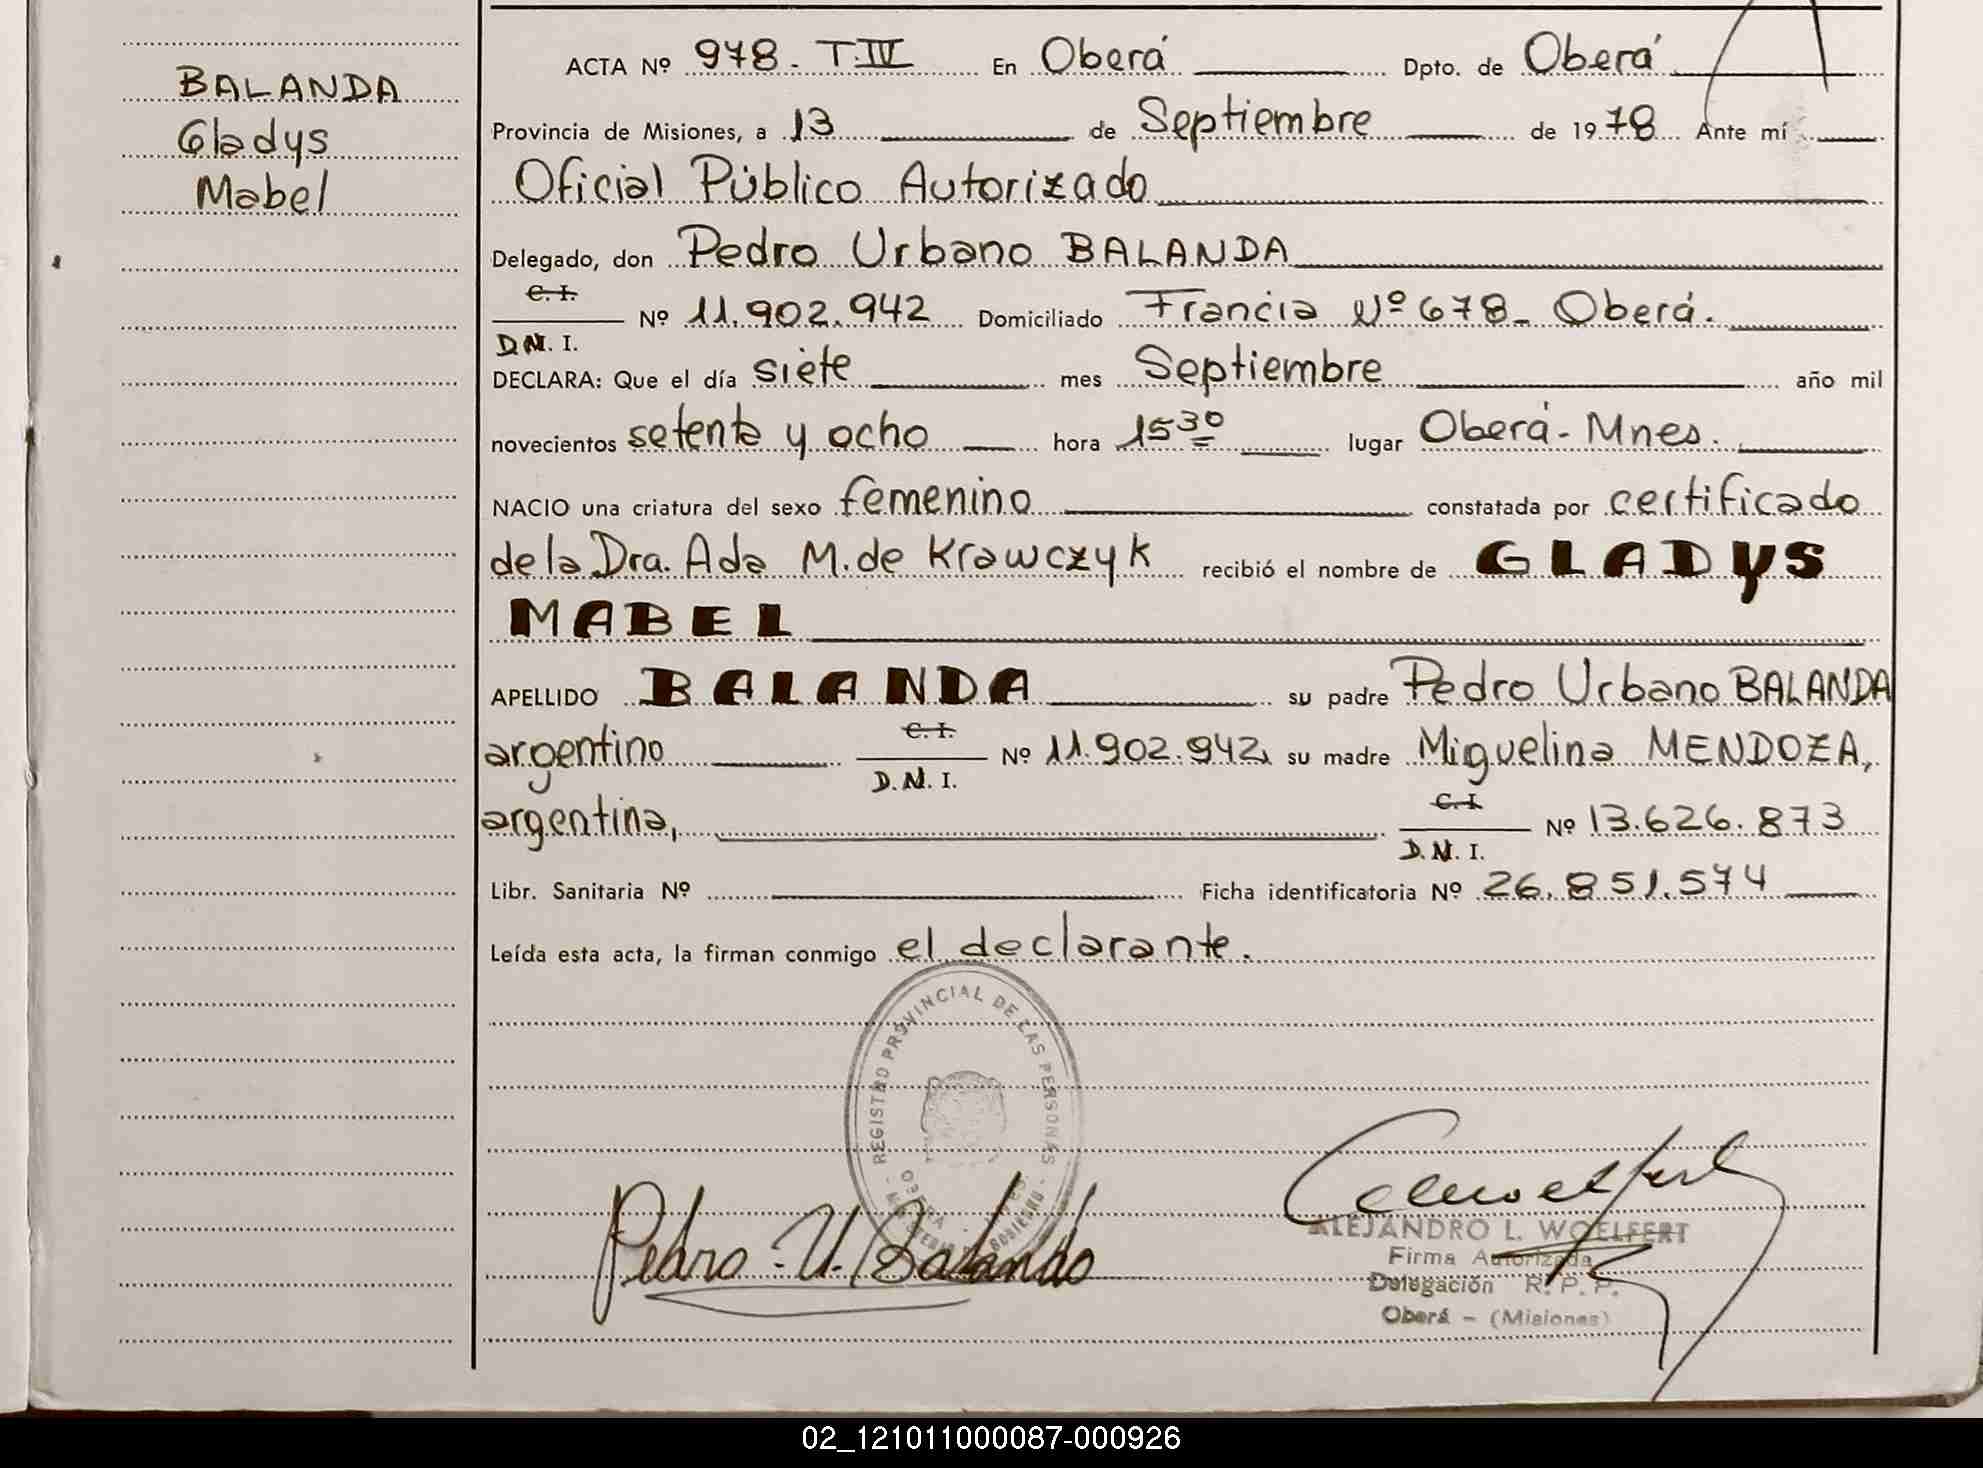 BALANDA
Gladys
Mabel
ACTA Nº 978. T.IV En Oberá Dpto. de Oberá
Provincia de Misiones, a 13 de Septiembre de 1978 Ante mí
Oficial Público Autorizado
Delegado, don Pedro Urbano BALANDA
C. I.
D.N. I. Nº 11.902.942 Domiciliado Francia Nº 678_ Oberá.
DECLARA: Que el día siete mes Septiembre año mil
novecientos setenta y ocho hora 15 30 lugar Oberá-Mnes.
NACIO una criatura del sexo femenino constatada por certificado
de la Dra. Ada M. de Krawczyk recibió el nombre de GLADYS
MABEL
APELLIDO BALANDA su padre Pedro Urbano BALANDA
argentino C. I. D. N. I. Nº 11.902.942, su madre Miguelina MENDOZA,
argentina, C. I. D. N. I. Nº 13.626.873
Libr. Sanitaria Nº Ficha identificatoria Nº 26.851.574
Leída esta acta, la firman conmigo el declarante.
REGISTRO PROVINCIAL DE LAS PERSONAS
Pedro U. Balanda
ALEJANDRO L. WOELFERT
Firma Autorizada
Delegación R. P. P.
Oberá - (Misiones)
02_121011000087-000926